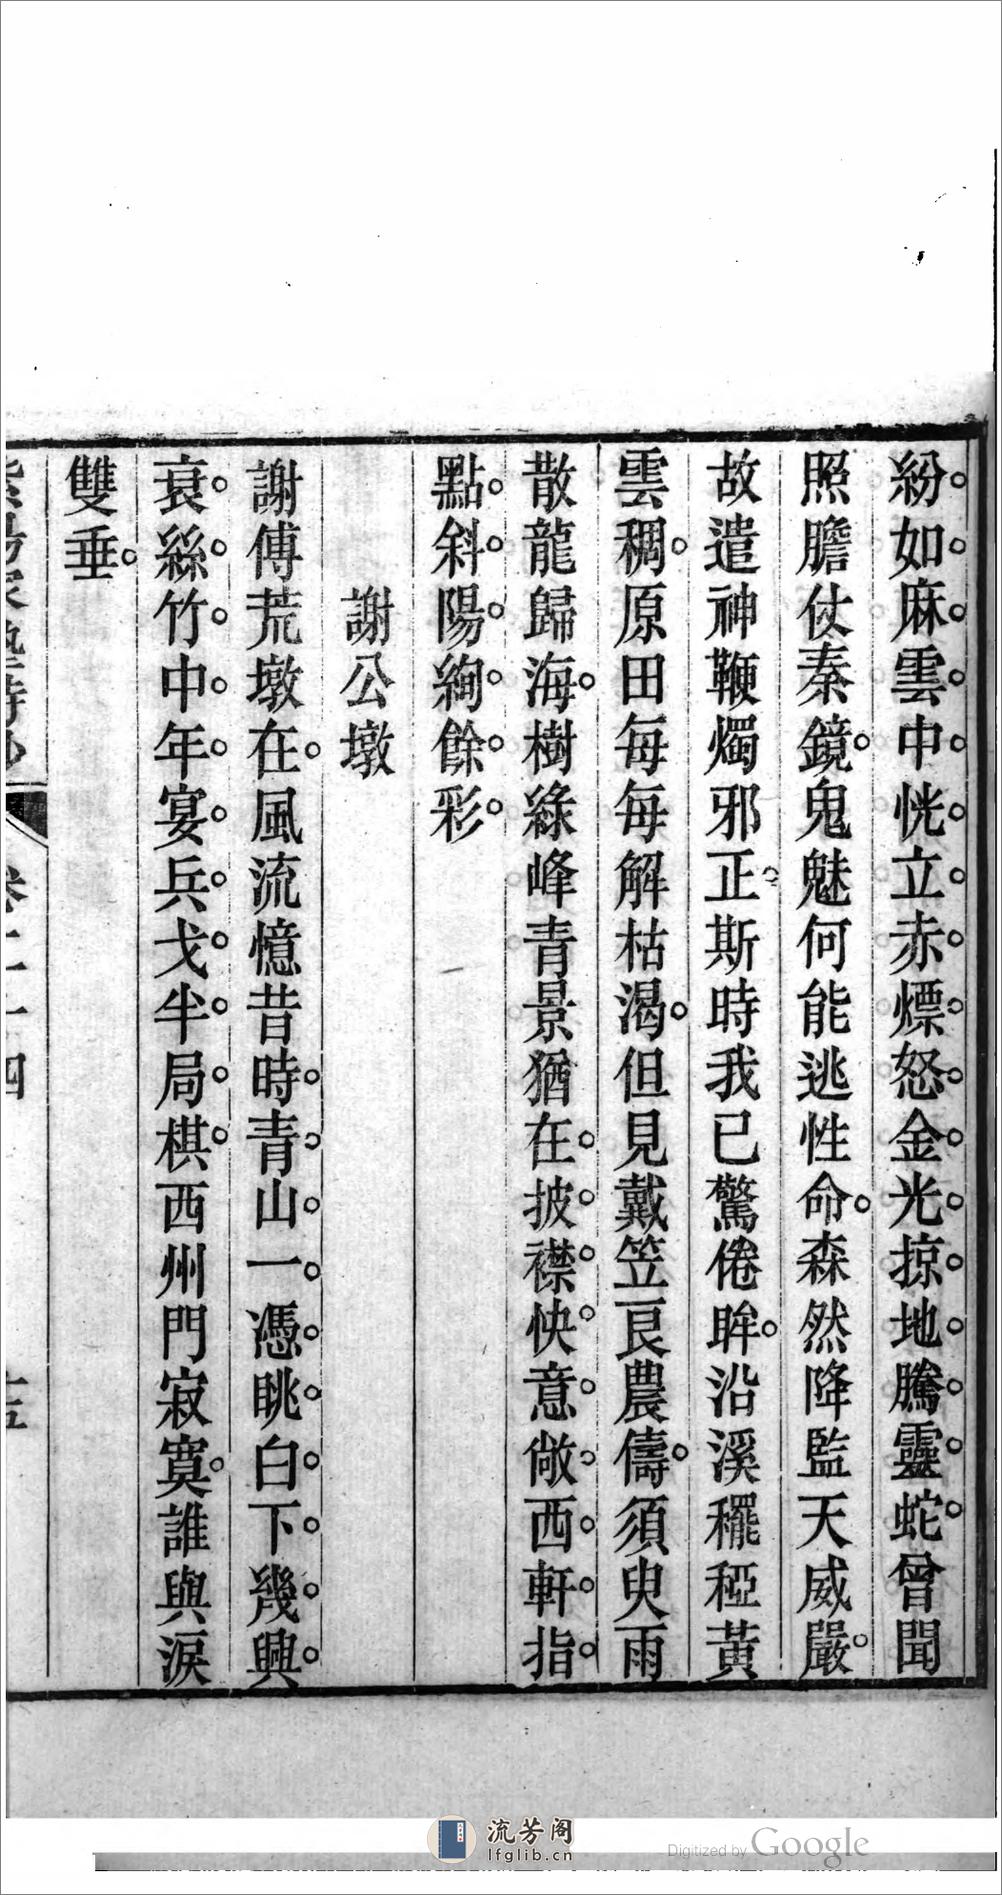 紛如麻雲中恍立赤熛怒金光掠地騰靈蛇曾聞
照膽仗秦鏡鬼魅何能逃性命森然降監天威嚴
故遣神鞭燭邪正斯時我已驚倦眸沿溪䆉稏黃
雲稠原田每每解枯渴但見戴笠艮農儔須臾雨
散龍歸海樹綠峰青景猶在披襟快意敞西軒指
點斜陽絢餘彩
謝公墩
謝傅荒墩在風流憶昔時青山一憑眺白下幾興
衰絲竹中年宴兵戈半局棋西州門寂寞誰與淚
雙垂
流芳阁
lfglib.cn
Digitized by Google